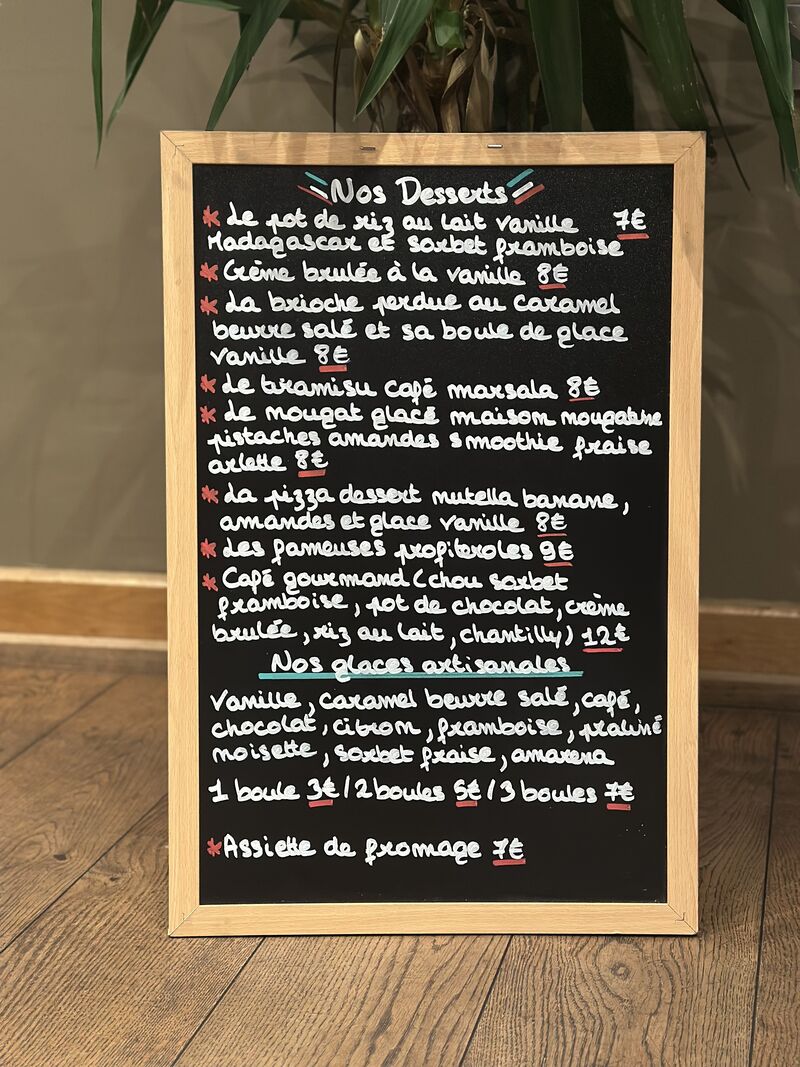 Nos Desserts
* Le pot de riz au lait vanille 7€
Madagascar et sorbet framboise
* Crème brulée à la vanille 8€
* La brioche perdue au caramel
beurre salé et sa boule de glace
vanille 8€
* Le tiramisu café marsala 8€
* Le nougat glacé maison nougatine
pistaches amandes smoothie fraise
arlette 8€
* La pizza dessert nutella banane,
amandes et glace vanille 8€
* Les fameuses profiteroles 9€
* Café gourmand (chou sorbet
framboise, pot de chocolat, crème
brulée, riz au lait, chantilly) 12€
Nos glaces artisanales
Vanille, caramel beurre salé, café,
chocolat, citron, framboise, praliné
noisette, sorbet fraise, amarena
1 boule 3€ / 2 boules 5€ / 3 boules 7€
* Assiette de fromage 7€